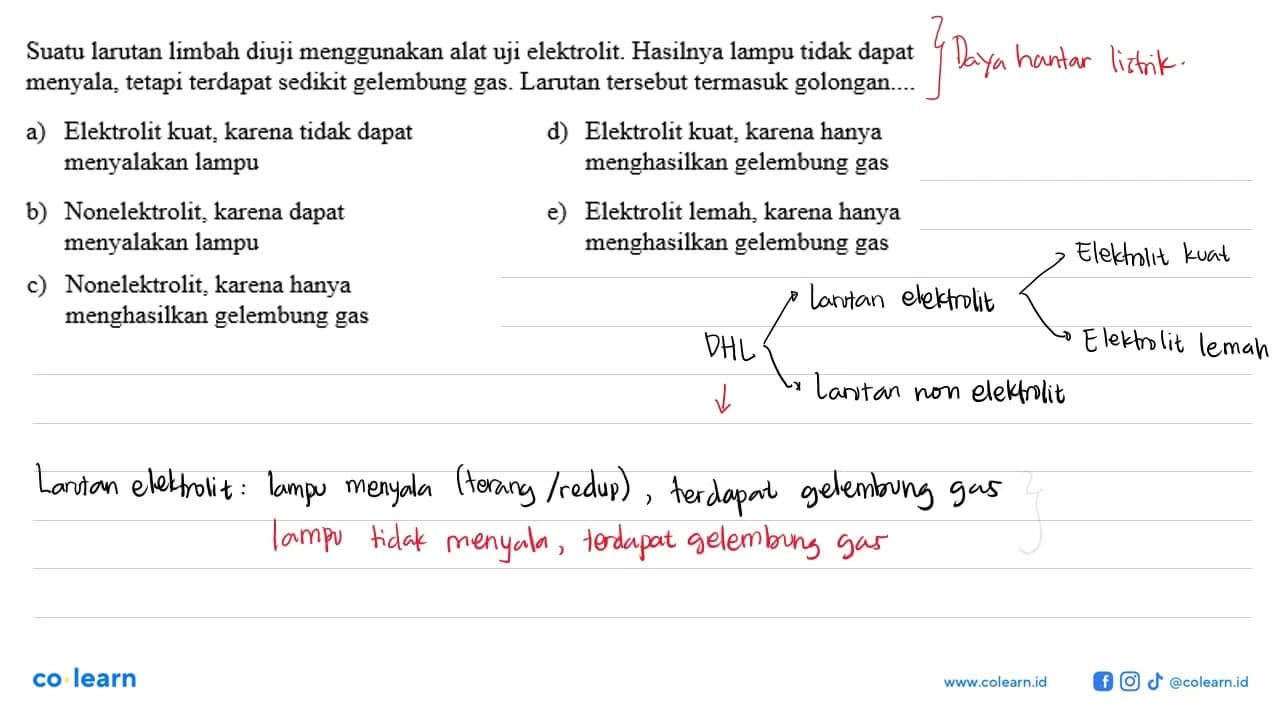 Suatu larutan limbah diuji menggunakan alat uji elektrolit. Hasilnya lampu tidak dapat
menyala, tetapi terdapat sedikit gelembung gas. Larutan tersebut termasuk golongan....
Daya hantar listrik.
a) Elektrolit kuat, karena tidak dapat
menyalakan lampu
b) Nonelektrolit, karena dapat
menyalakan lampu
c) Nonelektrolit, karena hanya
menghasilkan gelembung gas
d) Elektrolit kuat, karena hanya
menghasilkan gelembung gas
e) Elektrolit lemah, karena hanya
menghasilkan gelembung gas
Elektrolit kuat
larutan elektrolit
Elektrolit lemah
DHL
Larutan non elektrolit
Larutan elektrolit: lampu menyala (terang/redup), terdapat gelembung gas
lampu tidak menyala, terdapat gelembung gas
co learn
www.colearn.id
@colearn.id